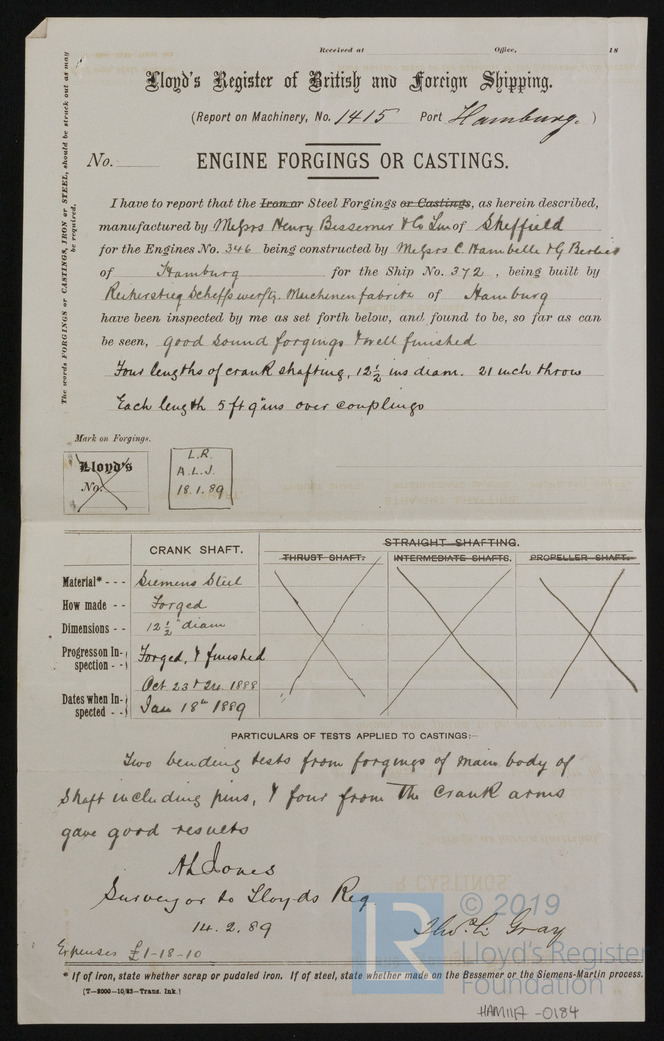 Received at Office, 18
Lloyd's Register of British and Foreign Shipping.
(Report on Machinery, No. 1415 Port Hamburg.)
No.
ENGINE FORGINGS OR CASTINGS.
The words FORGINGS or CASTINGS, IRON or STEEL, should be struck out as may be required.
I have to report that the Iron or Steel Forgings or Castings, as herein described,
manufactured by Messrs Henry Bessemer & Co Lim of Sheffield
for the Engines No. 346 being constructed by Messrs C. Hambelle & G
of Hamburg for the Ship No. 372, being built by
Reiherstieg Scheffswerfte. Maschinenfabrik of Hamburg
have been inspected by me as set forth below, and found to be, so far as can
be seen, good sound forgings & well finished
Four lengths of crank shafting, 12½ ins diam. 21 inch throw
Each length 5 ft 9 ins over couplings
Mark on Forgings.
Lloyd's
No.
L.R.
A.L.J.
18.1.89
STRAIGHT SHAFTING.
CRANK SHAFT. THRUST SHAFT. INTERMEDIATE SHAFTS. PROPELLER SHAFT.
Material* - - - Siemens Steel
How made - - Forged
Dimensions - - 12½" diam
Progress on Inspection - - Forged, & finished
Oct 23 & 24. 1888
Dates when Inspected - - Jan 18th 1889
PARTICULARS OF TESTS APPLIED TO CASTINGS:-
Two bending tests from forgings of main body of
shaft including pins, & four from the crank arms
gave good results
A L Jones
Surveyor to Lloyds Reg
14.2.89
Thos. Gray
Expenses £1-18-10
* If of iron, state whether scrap or pudaled iron. If of steel, state whether made on the Bessemer or the Siemens-Martin process.
(T—2000—10/83—Trans. Ink.)
© 2019
Lloyd's Register
Foundation
HAM1117-0184